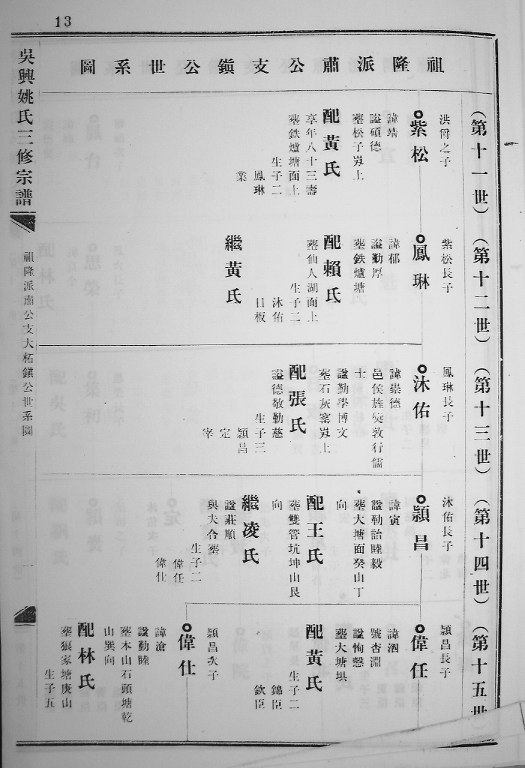 13
祖隆派肅公支鎮公世系圖
吳興姚氏三修宗譜
祖隆派肅公支大柘鎮公世系圖
一
(第十一世)
洪僧之子
紫松
諱靖
謚碩德
塟松子岽上
配黃氏
享年八十三壽
塟鉄爐塘面上
生子二
鳳琳
業
(第十二世)
紫松長子
鳳琳
諱郁
謚勤厚
塟鉄爐塘
配賴氏
塟仙人湖面上
生子二
沐佑
日板
繼黃氏
(第十三世)
鳳琳長子
沐佑
諱崇德
邑侯旌奬敦行儒
士
謚勤學博文
塟石灰窰岽上
配張氏
謚德敬勤慈
生子三
頴昌
定
宰
(第十四世)
沐佑長子
頴昌
諱寅
謚勤詒睦毅
塟大塘面癸山丁
向
配王氏
塟雙管坑坤山艮
向
繼凌氏
謚莊順
與夫合塟
生子二
偉任
偉仕
(第十五世
頴昌長子
偉任
諱泗
號杏淵
謚恂慤
塟大塘垻
配黃氏
生子二
錦臣
欽臣
頴昌次子
偉仕
諱滄
謚勤睦
塟本山石頭塘乾
山巽向
配林氏
塟狼家塘庚山
生子五